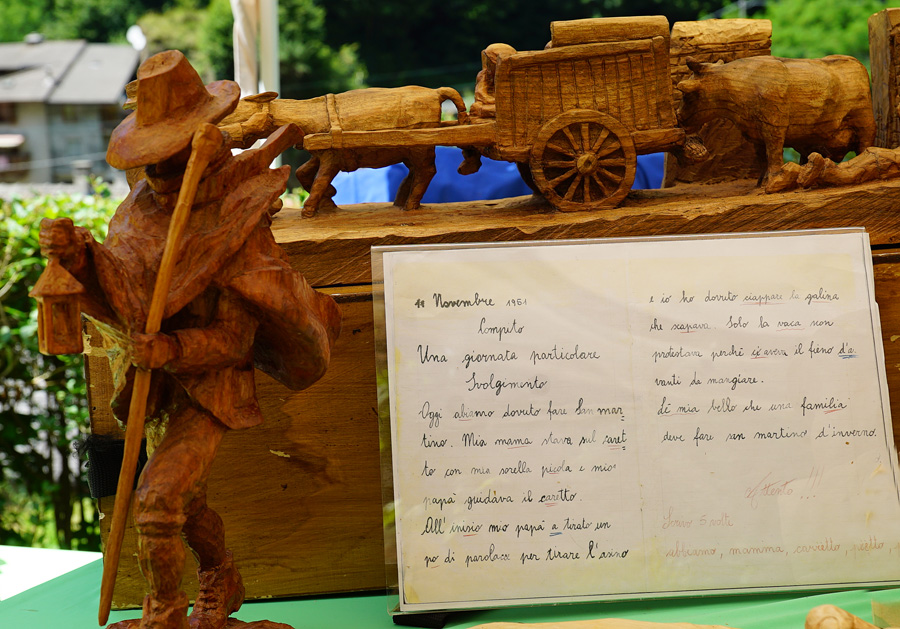 11 Novembre 1961
Computo
Una giornata particolare
Svolgimento
Oggi abiamo dovuto fare San mar-
tino. Mia mama stava sul caret
to con mia sorella picola e mio
papà guidava il caretto.
All'inisio mio papà a tirato un
po di parolacce per tirare l'asino
e io ho dovuto ciappare la galina
che scapava. Solo la vaca non
protestava perchè ci aveva il fieno d'a
vanti da mangiare.
Lì mia bello che una familia
deve fare san martino d'inverno.
Attento!!!
Scrivo 5 volte
abbiamo, mamma, carretto,